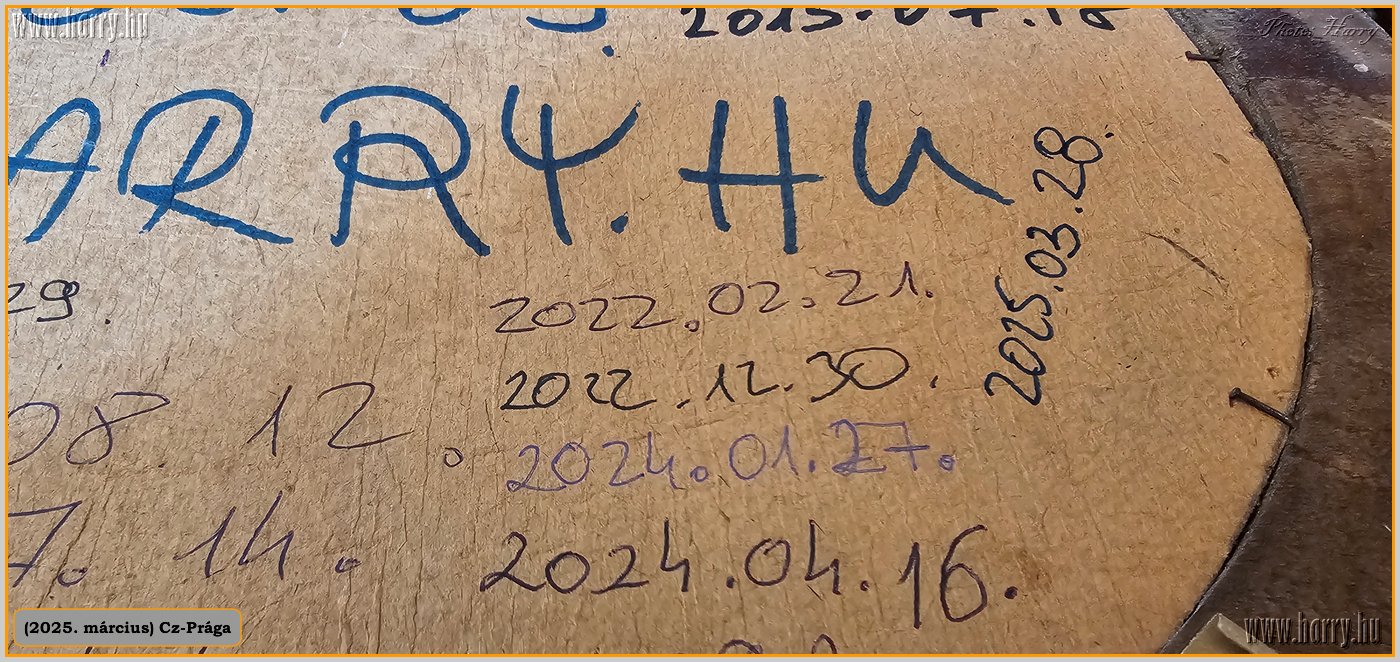 www.horry.hu
2015.07.18
Photos Harry
ARRY.HU
2025.03.28.
29.
2022.02.21.
2022.12.30.
08 12.
2024.01.27.
7. 14.
2024.04.16.
(2025. március) Cz-Prága
www.horry.hu